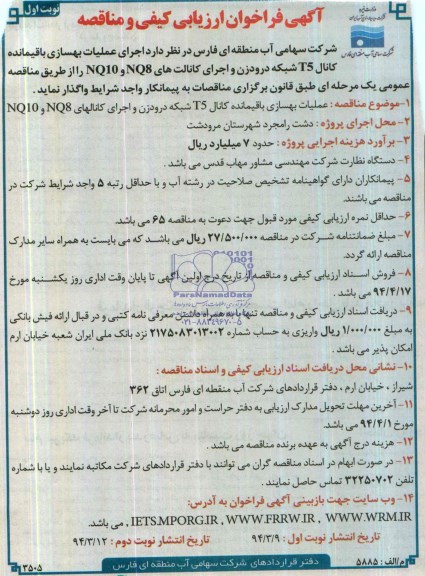 نوبت اول
آگهی فراخوان ارزیابی کیفی و مناقصه
شرکت سهامی آب منطقه ای فارس در نظر دارد اجرای عملیات بهسازی باقیمانده
کانال T5 شبکه درودزن و اجرای کانالت های NQ8 و NQ10 را از طریق مناقصه
عمومی یک مرحله ای طبق قانون برگزاری مناقصات به پیمانکار واجد شرایط واگذار نماید .
۱-موضوع مناقصه : عملیات بهسازی باقیمانده کانال T5 شبکه درودزن و اجرای کانالهای NQ8 و NQ10
۲- محل اجرای پروژه : دشت رامجرد شهرستان مرودشت
۳- برآورد هزینه اجرایی پروژه : حدود ۷ میلیارد ریال
۴- دستگاه نظارت شرکت مهندسی مشاور مهاب قدس می باشد .
۵- پیمانکاران دارای گواهینامه تشخیص صلاحیت در رشته آب و با حداقل رتبه ۵ واجد شرایط شرکت در
مناقصه می باشند.
۶- حداقل نمره ارزیابی کیفی مورد قبول جهت دعوت به مناقصه ۶۵ می باشد.
۷- مبلغ ضمانتنامه شرکت در مناقصه ۲۷/۵۰۰/۰۰۰ ریال می باشد که می بایست به همراه سایر مدارک
مناقصه ارائه گردد.
۸- فروش اسناد ارزیابی کیفی و مناقصه از تاریخ درج اولین آگهی تا پایان وقت اداری روز یکشنبه مورخ
۹۴/۴/۱۷ می باشد .
ParsNamadData
۰۲۱-۸۸۳۴۹۶۷۰-۵
۹- دریافت اسناد ارزیابی کیفی و مناقصه تنها با به همراه داشتن معرفی نامه کتبی و در قبال ارائه فیش بانکی
به مبلغ ۱/۰۰۰/۰۰۰ ریال واریزی به حساب شماره ۲۱۷۵۰۸۳۰۱۳۰۰۲ نزد بانک ملی ایران شعبه خیابان ارم
امکان پذیر می باشد .
۱۰- نشانی محل دریافت اسناد ارزیابی کیفی و اسناد مناقصه :
شیراز ، خیابان ارم ، دفتر قراردادهای شرکت آب منقطه ای فارس اتاق ۳۶۲
۱۱- آخرین مهلت تحویل مدارک ارزیابی به دفتر حراست و امور محرمانه شرکت تا آخر وقت اداری روز دوشنبه
مورخ ۹۴/۴/۱ می باشد.
۱۲- هزینه درج آگهی به عهده برنده مناقصه می باشد .
۱۳- در صورت ابهام در اسناد مناقصه گران می توانند با دفتر قراردادهای شرکت مکاتبه نمایند و یا با شماره
تلفن ۳۲۲۵۰۷۰۲ تماس حاصل نمایند .
۱۴- وب سایت جهت بازبینی آگهی فراخوان به آدرس:
IETS.MPORG.IR , WWW.FRRW.IR , WWW.WRM.IR , می باشد.
تاریخ انتشار نوبت اول : ۹۴/۳/۹ تاریخ انتشار نوبت دوم : ۹۴/۳/۱۲
م/الف : ۵۸۸۵ دفتر قراردادهای شرکت سهامی آب منطقه ای فارس ۳۵۰۵